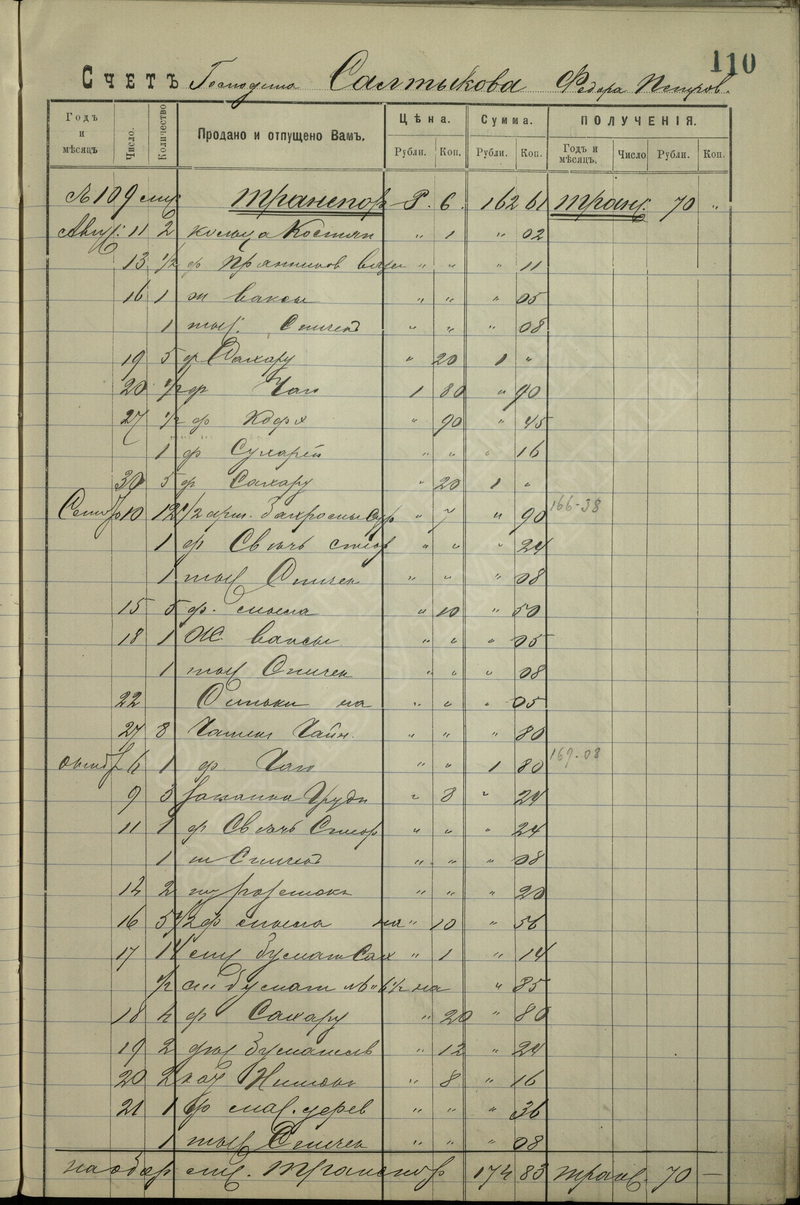 110
Счетъ Господина Салтыкова Федора Петров.
Годъ и мѣсяцъ Число. Количество Продано и отпущено Вамъ. Цѣна. Рубли. Коп. Сумма. Рубли. Коп. ПОЛУЧЕНІЯ. Годъ и мѣсяцъ. Число Рубли. Коп.
109 стр. транспор Р. 6. 162 61 транс. 70 "
Авг. 11 2 кольца Костян " 1 " 02
13 1/2 ф Пряников " " " 11
16 1 ж ваксы " " " 05
1 тыс. Спичек " " " 08
19 5 ф Сахару " 20 1 "
20 1/2 ф Чаю 1 80 " 90
27 1/2 ф Кофя " 90 " 45
1 ф Сухарей " " " 16
30 5 ф Сахару " 20 1 "
Сентяб 10 12 1/2 арш. " 7 " 90 166-38
1 ф Свечь стеор " " " 24
1 тыс Спичек " " " 08
15 5 ф. мыла " 10 " 50
18 1 Ж. ваксы " " " 05
1 тыс Спичек " " " 08
22 на " " " 05
24 8 Чашек Чайн. " " " 80
октяб 4 1 ф Чаю " " 1 80 169-08
9 3 " 8 " 24
11 1 ф Свечь Стеор " " " 24
1 т Спичек " " " 08
14 2 " " " 20
16 5 1/2 ф мыла на " 10 " 56
17 14 бумаги Сах " 1 " 14
1/2 бумаги № 6 1/2 на " 85
18 4 ф Сахару " 20 " 80
19 2 " 12 " 24
20 2 Ниток " 8 " 16
21 1 ф мас. дерев " " " 36
1 тыс Спичек " " " 08
на обор стр. транспор 174 83 транс. 70 —